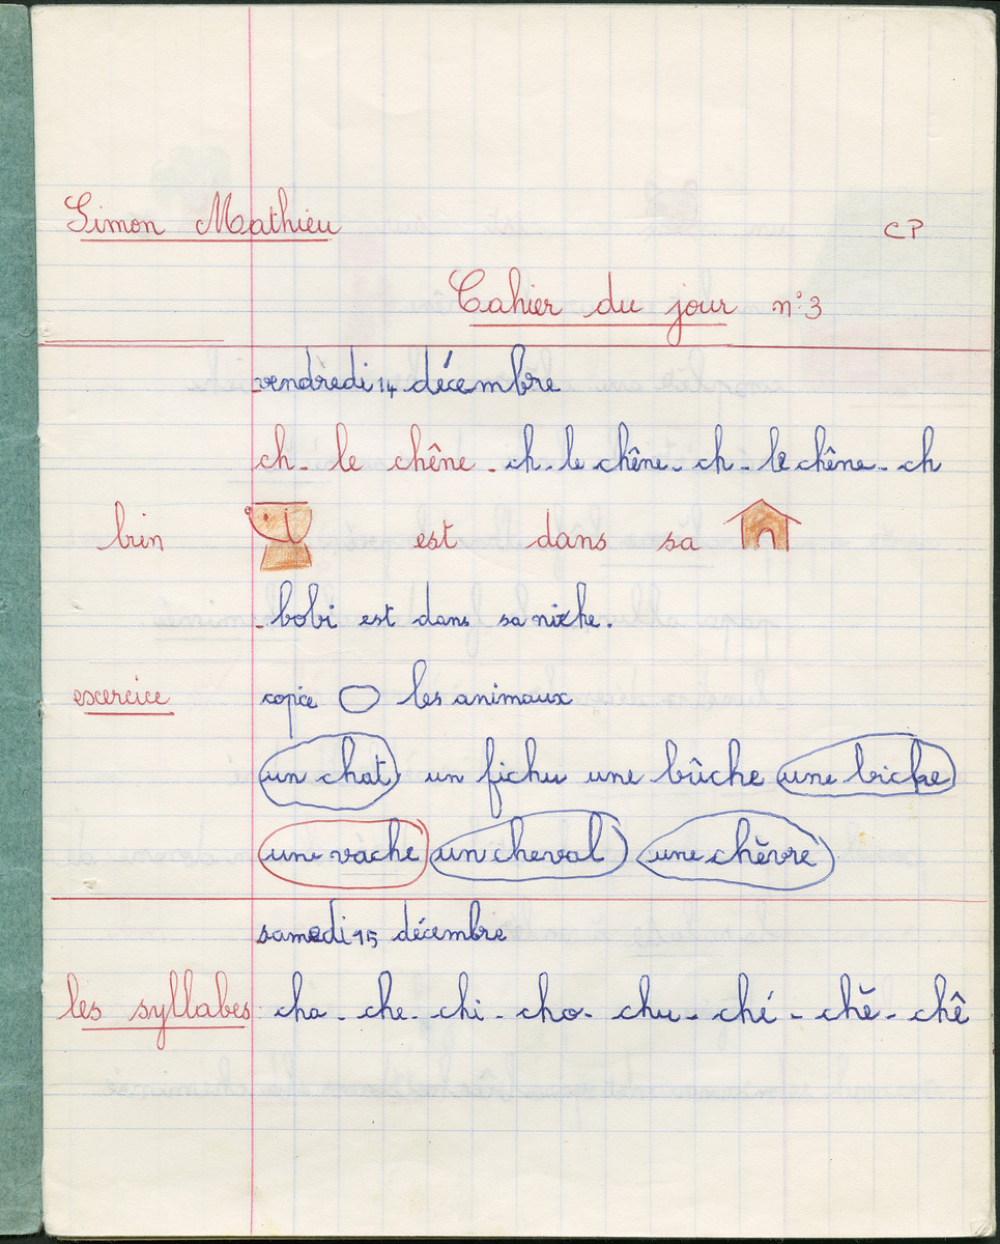 Simon Mathieu
CP
Cahier du jour n°3
vendredi 14 décembre
ch - le chêne - ch - le chêne - ch - le chêne - ch
bien est dans sa
bobi est dans sa niche.
exercice copie les animaux
un chat un fichu une bûche une biche
une vache un cheval une chèvre
samedi 15 décembre
les syllabes cha - che - chi - cho - chu - ché - chè - chê